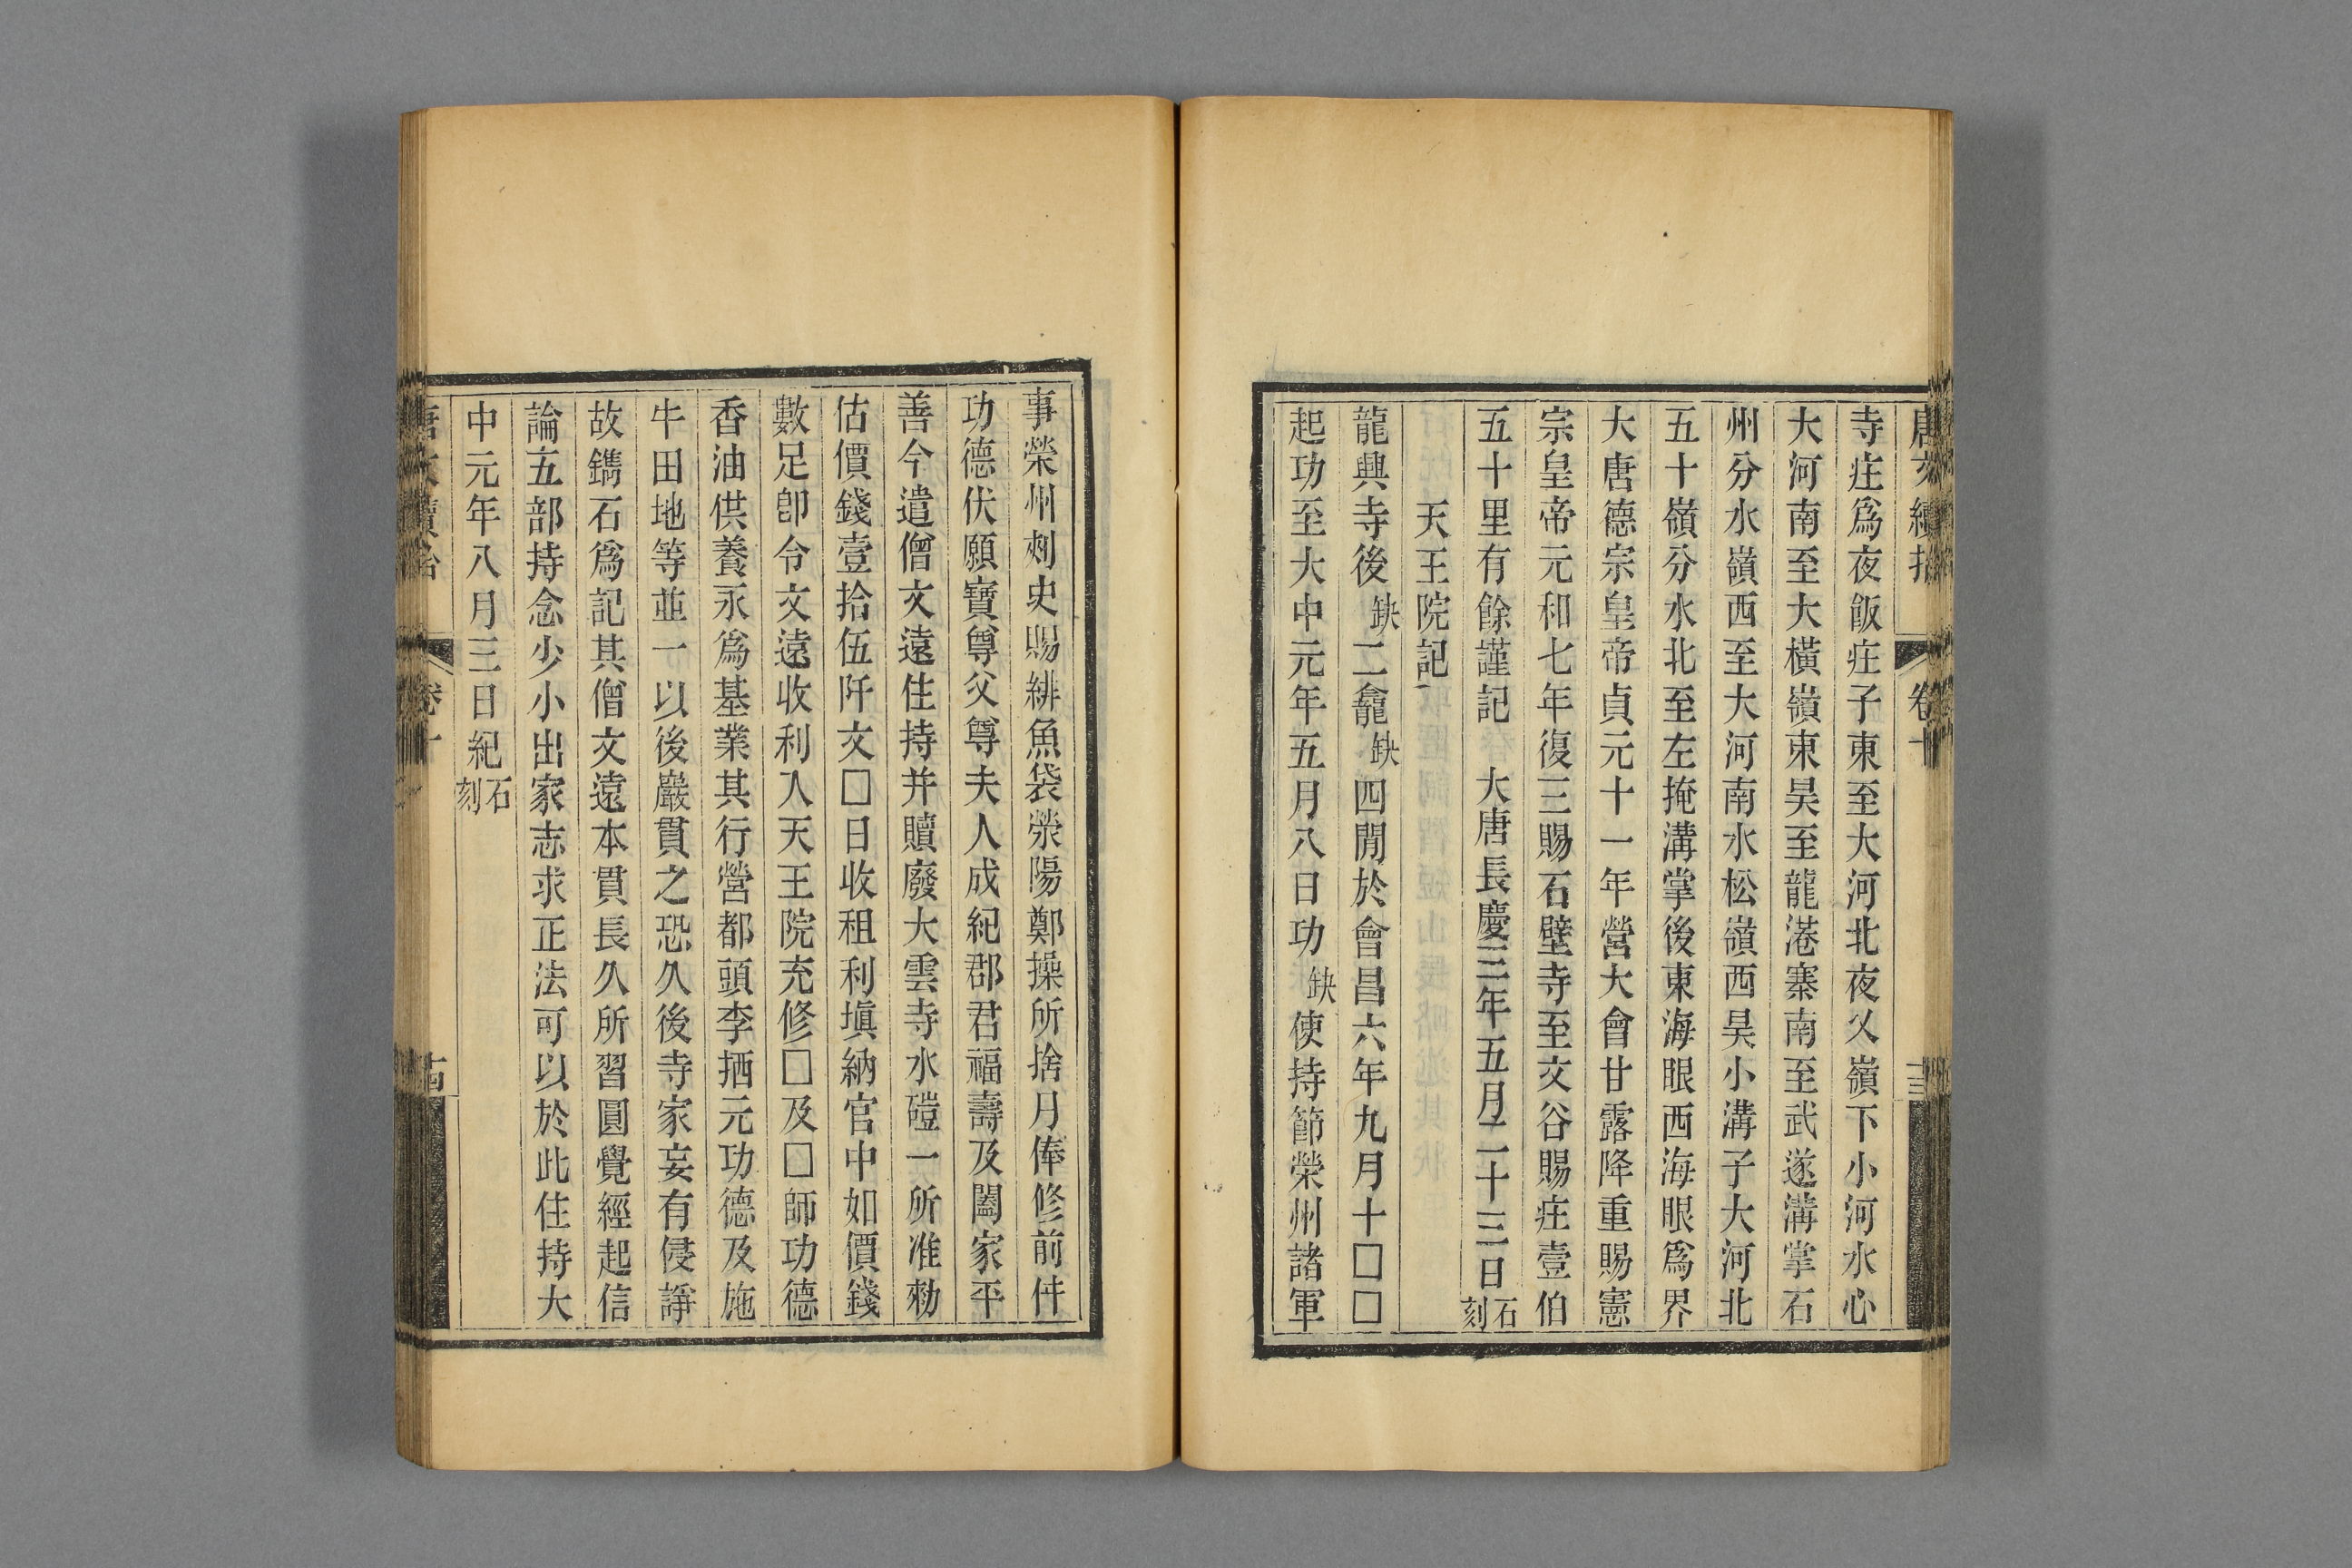 唐文續拾
卷十
十三
寺庄爲夜飯庄子東至大河北夜乂嶺下小河水心
大河南至大橫嶺東昊至龍港寨南至武遂溝掌石
州分水嶺西至大河南水松嶺西昊小溝子大河北
五十嶺分水北至左掩溝掌後東海眼西海眼爲界
大唐德宗皇帝貞元十一年營大會甘露降重賜憲
宗皇帝元和七年復三賜石壁寺至交谷賜庄壹伯
五十里有餘謹記　大唐長慶三年五月二十三日石刻
天王院記
龍興寺後缺二龕缺四閒於會昌六年九月十□□
起功至大中元年五月八日功缺使持節榮州諸軍
事榮州刺史賜緋魚袋滎陽鄭操所捨月俸修前件
功德伏願寶尊父尊夫人成紀郡君福壽及闔家平
善今遣僧文遠住持并贖廢大雲寺水磑一所准勑
估價錢壹拾伍阡文□日收租利塡納官中如價錢
數足卽令文遠收利入天王院充修□及□師功德
香油供養永爲基業其行營都頭李栖元功德及施
牛田地等並一以後嚴貫之恐久後寺家妄有侵諍
故鐫石爲記其僧文遠本貫長久所習圓覺經起信
論五部持念少小出家志求正法可以於此住持大
中元年八月三日紀石刻
唐文續拾
卷十
十四